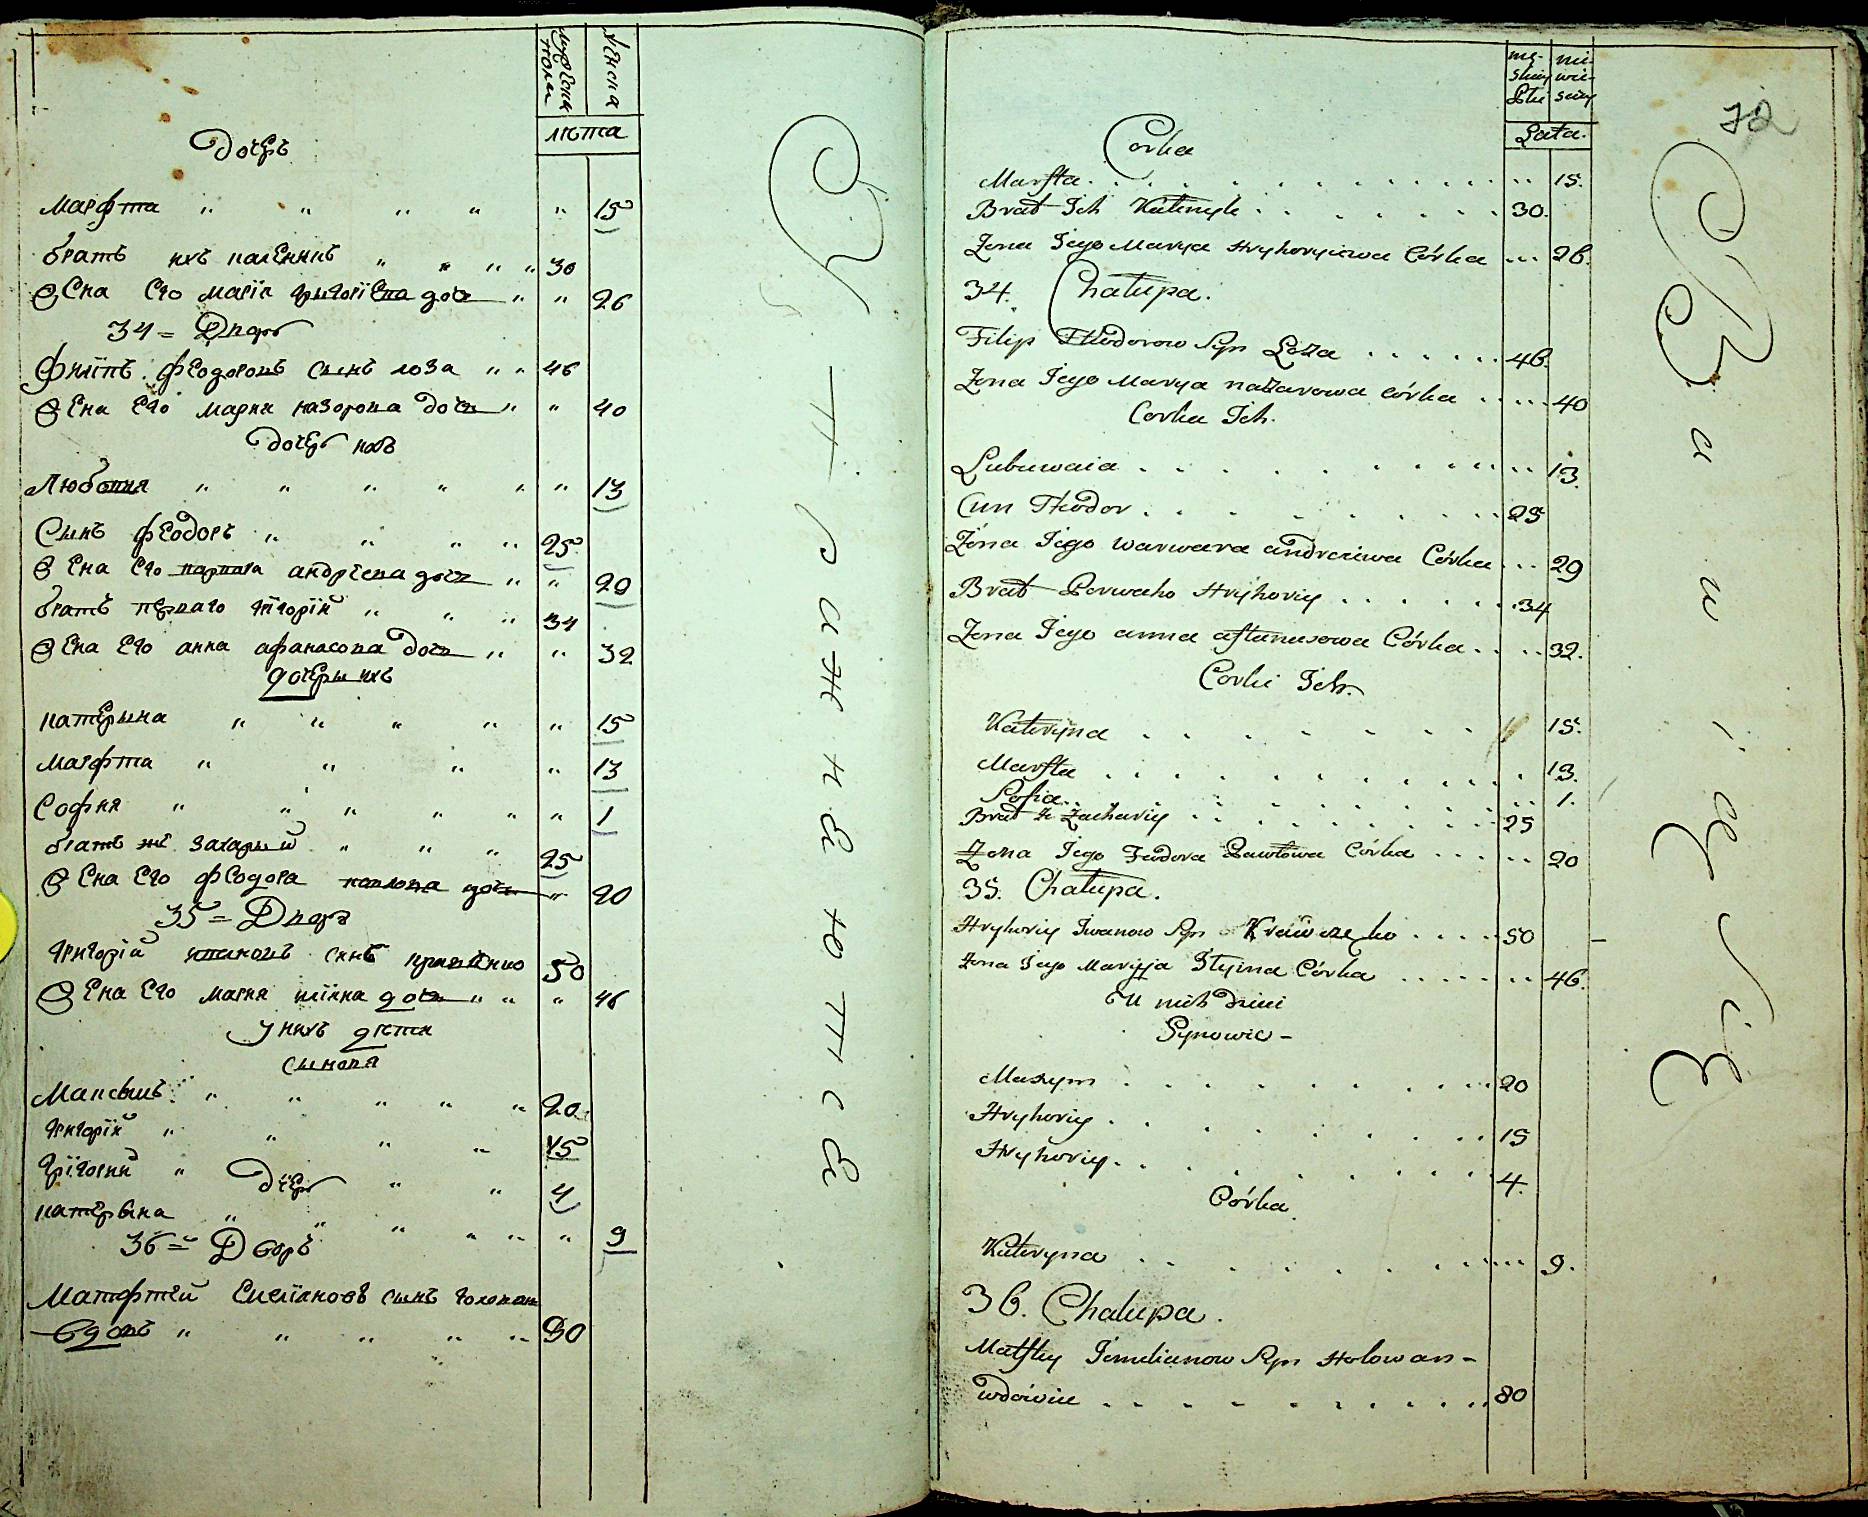 мужеска полу
женска
лѣта
Дочерь
Марфта " " " " " 15
братъ ихъ " " " " 30
жена Его Марія григоріева дочь " " 26
34 = Дворъ
Филіпъ Феодоровъ сынъ лоза " " 46
жена Его Мария назорова дочь " " 40
дочерь ихъ
Любовия " " " " " " 13
Сынъ феодоръ " " " " 25
жена Его варвара андріева дочь " " 29
братъ перваго григорій " " " 34
жена Его анна афанасова дочь " " 32
дочеры ихъ
катерына " " " " " 15
Марфта " " " " 13
София " " " " " " 1
братъ же захарый " " " 25
жена Его феодора павлова дочь " 20
35 = Дворъ
григорій ивановъ синъ кравченко 50
жена Его Мария иліина дочь " " " 46
У нихъ дѣти
сынове
Максымъ " " " " " 20
григорій " " " " 15
грігорий " " " 4
дчерь
катерына " " " " " " 9
36 = Дворъ
Матфтей Емеліановъ сынъ головань
вдовъ " " " " " 80
Су п р а ж н е ю т с е
72
mę-skiey płci
nie-wie-sciey
Lata.
Corka
Marfta . . . . . . . . 15.
Brat Ich . . . . . . . 30.
Zona Iego Marya Hryhoryiewa Córka ... 26.
34. Chałupa.
Filip Fteodorow Syn Loza . . . . . . 46.
Zona Iego Marya nazarowa córka . . . . . 40
Corka Ich.
Lubuwaia . . . . . . . . 13.
Cun Fteodor . . . . . . . . 25
Zona Iego warwara andreiewa Córka ... 29
Brat Perwaho Hryhoriy . . . . . . . 34
Zona Iego anna aftanasowa Córka . . . . 32.
Corki Ich.
Kateryna . . . . . . . 15.
Marfta . . . . . . . . . . 13.
Sofia . . . . . . . . 1.
Brat że Zachariy . . . . . . . . 25
Zona Iego Feodora Pawłowa Córka . . . . . 20
35. Chałupa.
Hryhoriy Iwanow Syn Krawczeńko . . . . 50
Zona Iego Maryja Illyina Córka . . . . . . . 46.
U nich dzieci
Synowie –
Maxym . . . . . . . . 20
Hryhoriy . . . . . . . . 15
Hryhoriy . . . . . . . . 4.
Córka
Kateryna . . . . . . . . . 9.
36. Chałupa.
Matftey Iemelianow Syn Hołowan –
wdowiec . . . . . . . . . . . 80